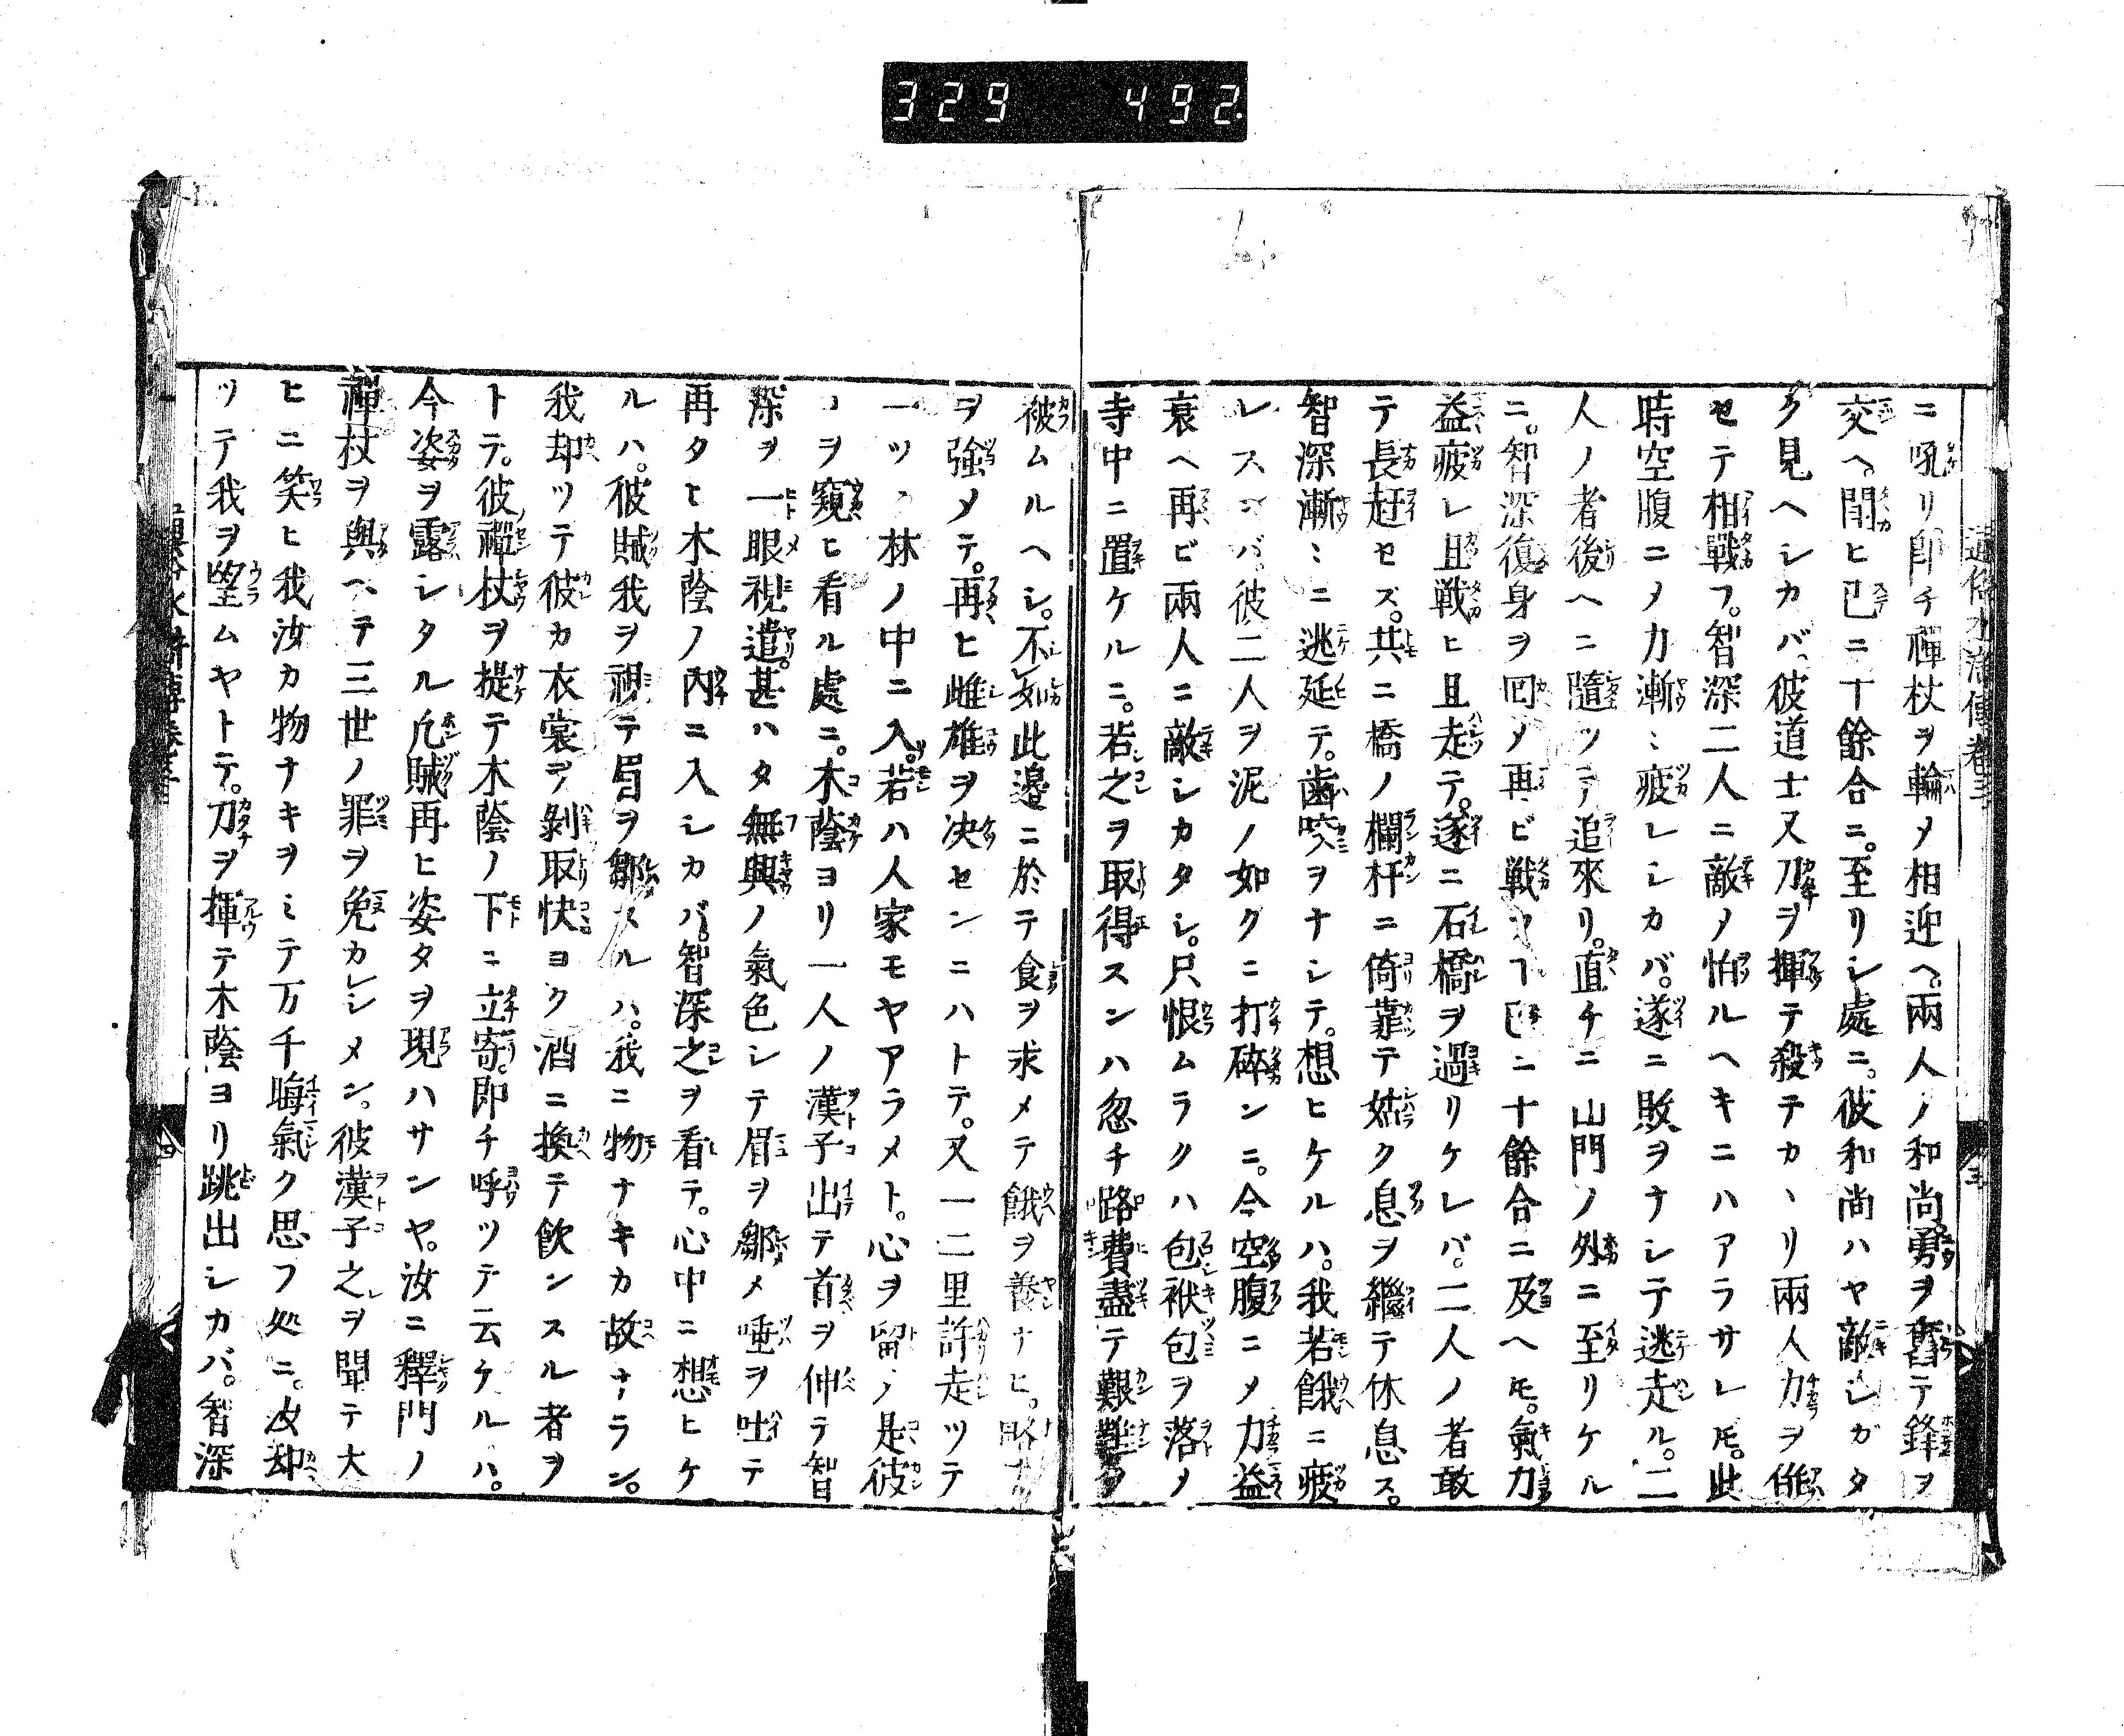 329 492.
通俗水滸傳卷三
ニ吼リ即チ禪杖ヲ輪メ相迎ヘ。兩人ノ和尚勇ヲ奮テ鋒ヲ
交ヘ。閗ヒ已ニ十餘合ニ。至リシ處ニ。彼和尚ハヤ敵シガタ
ク見ヘシカバ。彼道士又刀ヲ揮テ殺テカヽリ兩人力ヲ併
セテ相戰フ。智深二人ニ敵ノ怕ルヘキニハアラサレ𪜈。此
時空腹ニメ力漸ミ疲レシカバ。遂ニ敗ヲナシテ逃走ル。二
人ノ者後ヘニ隨ツテ追來リ。直チニ山門ノ外ニ至リケル
ニ。智深復身ヲ囘メ再ビ戰フヿ已ニ十餘合ニ及ヘ𪜈。氣力
益疲レ且戰ヒ且走テ。遂ニ石橋ヲ過リケレバ。二人ノ者敢
テ長赶セズ。共ニ橋ノ欄杆ニ倚靠テ姑ク息ヲ繼テ休息ス。
智深漸ミニ逃延テ。歯咬ヲナシテ。想ヒケルハ。我若餓ニ疲
レスンバ。彼二人ヲ泥ノ如クニ打碎ンニ。今空腹ニメ力益
衰ヘ再ビ兩人ニ敵シカタシ。只恨ムラクハ包袱包ヲ落メ
寺中ニ置ケルニ。若之ヲ取得スンハ忽チ路費盡テ艱難ヲ
被ムルヘシ。不如此邊ニ於テ食ヲ求メテ餓ヲ養ナヒ。
ヲ強メテ。再ヒ雌雄ヲ决センニハトテ。又一二里許走ツテ
一ツノ林ノ中ニ入。若ハ人家モヤアラメト。心ヲ留メ是彼
コヲ窺ヒ看ル處ニ。木蔭ヨリ一人ノ漢子出テ首ヲ伸テ智
深ヲ一眼視遣。甚ハタ無興ノ氣色シテ眉ヲ皺メ唾ヲ吐テ
再タヒ木蔭ノ內ニ入シカバ。智深之ヲ看テ。心中ニ想ヒケ
ルハ。彼賊我ヲ視テ眉ヲ皺スルハ。我ニ物ナキカ故ナラン。
我却ツテ彼カ衣裳ヲ剝取快ヨク酒ニ換テ飲ンスル者ヲ
トテ。彼禪杖ヲ提テ木蔭ノ下ニ立寄。即チ呼ツテ云ケルハ。
今姿ヲ露シタル凡賊再ヒ姿タヲ現ハサンヤ。汝ニ釋門ノ
禪杖ヲ與ヘテ三世ノ罪ヲ免カレシメン。彼漢子之ヲ聞テ大
ヒニ笑ヒ我汝カ物ナキヲミテ万千晦氣ク思フ処ニ。汝却
ツテ我ヲ望ムヤトテ。刀ヲ揮テ木蔭ヨリ跳出シカバ。智深